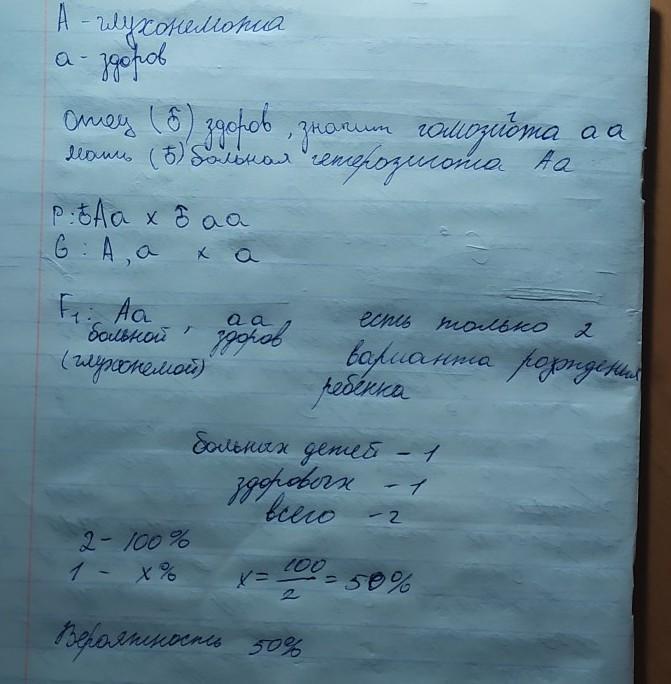 А - глухонемота
а - здоров
Отец (♂) здоров, значит гомозигота аа
мать (♀) больная гетерозигота Аа
P: ♀Аа х ♂ аа
G : А, а х а
F₁: Аа, аа есть только 2
больной здоров варианта рождения
(глухонемой) ребенка
больных детей - 1
здоровых - 1
всего - 2
2 - 100%
1 - х% х = 100/2 = 50%
Вероятность 50%